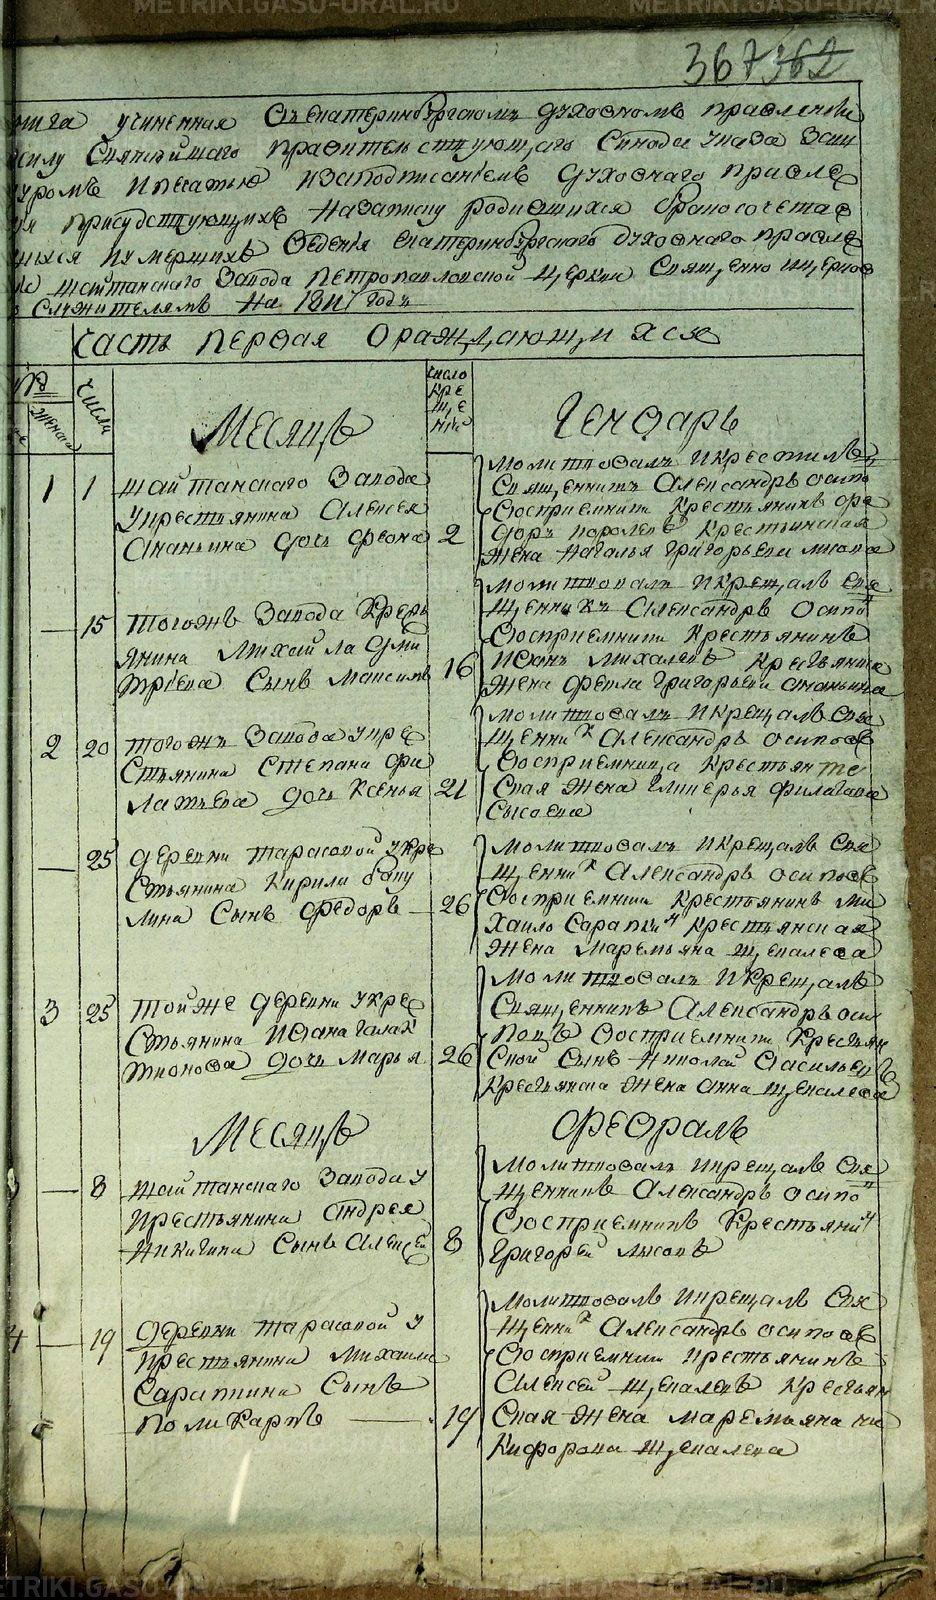 METRIKI.GASU-URAL.RU METRIKI.GASU-URAL.RU
367 362
нига учиненная Въ екатеринбургскомъ духовномъ правленїи
силу Святѣйшаго правительствующаго Синода указа Заш
уромъ Ипечатью изаподписанїемъ духовнаго правле
присудствующихъ назаписку родившихся бракосочетав
шихся иумершихъ Веденїя екатеринбургскаго духовнаго правле
шайтанскаго Завода петропавловской церкви Священно ицерков
служителямъ на годъ
часть первая Ораждающихся
числа
женска
Месяцъ
число кре ще нїи
Генварь
1 1 шайтанскаго Завода
укрестьянина Алексея
Ананьина дочь Феона 2
молитвовалъ икрестилъ
Священникъ Александръ осипо
Восприемники крестьянинъ фе
доръ королевъ крестьянская
жена наталья григорьева
— 15 тогожъ Завода Укрест
янина Михайла дми
трїева Сынъ Максимъ 16
молитвовалъ икрещалъ свя
щенникъ Александръ осипо
Восприемники крестьянинъ
Иванъ михалевъ
жена фекла григорьева ананьина
2 20 тогожъ Завода укре
стьянина Степана фи
латьева дочь Ксенья 21
молитвовалъ икрещалъ свя
щенникъ Александръ осипов
Восприемница крестьян
ская жена гликерья филатова
Сысоева
— 25 деревни тарасковой укре
стьянина Кирилы
лина Сынъ Федоръ — 26
молитвовалъ икрещалъ свя
щенникъ Александръ осипов
Восприемники крестьянинъ ми
хаило Сарапкин крестьянская
жена маремьяна щекалева
3 25 тойже деревни укре
стьянина Ивана галак
тионова дочь марья 26
молитвовалъ икрещалъ
Священникъ Александръ оси
повъ Восприемники крестьян
ской сынъ николай васильевъ
крестьянска жена анна щекалева
Месяцъ Февраль
— 8 шайтанскаго Завода у
крестьянина андрея
никитина Сынъ алексей 8
молитвовалъ икрещалъ свя
щенникъ Александръ осипо
Восприемникъ крестьянин
григорей лысовъ
4 — 19 деревни тарасковой у
крестьянина михаила
Сарапкина Сынъ
поликарпъ — 19
молитвовалъ икрещалъ свя
щенникъ Александръ осипов
Восприемники крестьянинъ
алексей щекалевъ крестьян
ская жена маремьяна ни
кифорова щекалева
METRIKI.GASU-URAL.RU METRIKI.GASU-URAL.RU